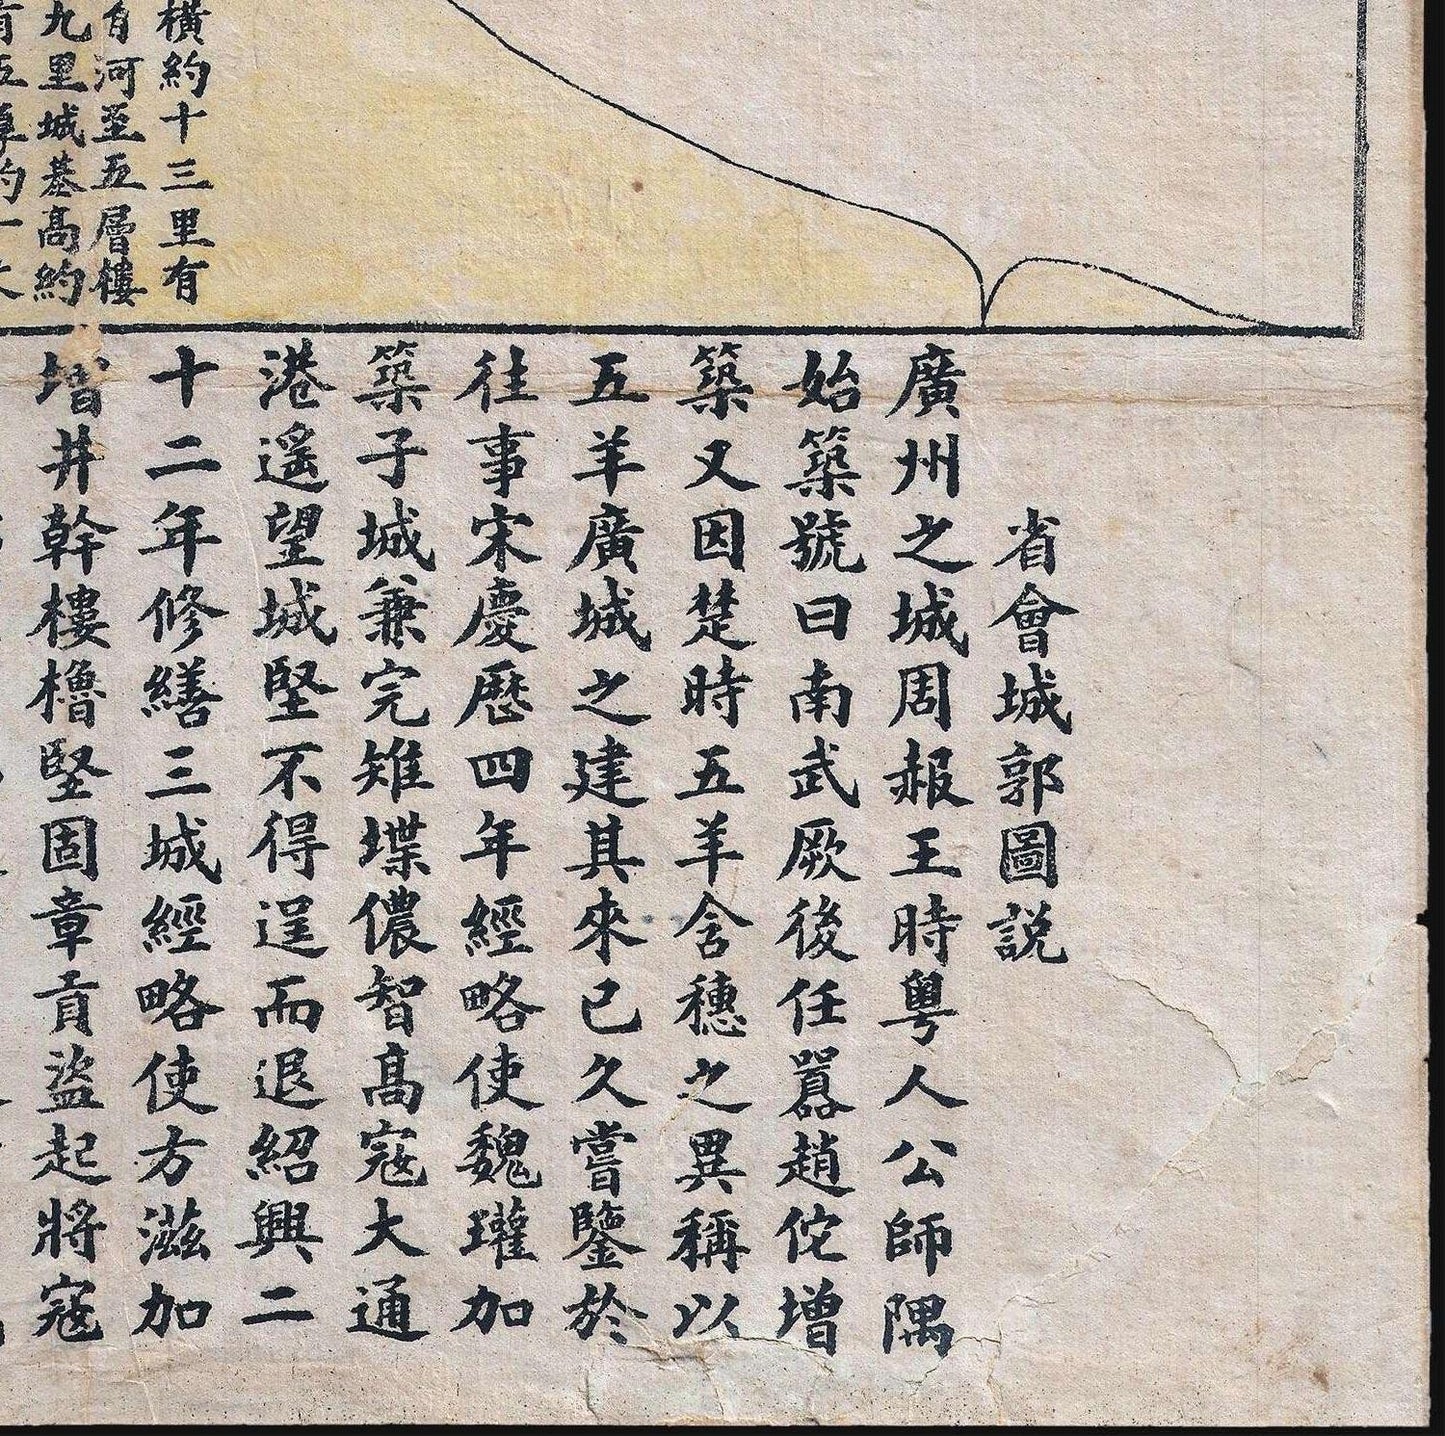 橫約十三里有
有河至五層樓
九里城基高約
省會城郭圖説
廣州之城周赧王時粵人公師隅
始築號曰南武厥後任囂趙佗增
築又因楚時五羊含穗之異稱以
五羊廣城之建其來已久嘗鑒於
往事宋慶厯四年經略使魏瓘加
築子城兼完雉堞儂智高寇大通
港遥望城堅不得逞而退紹興二
十二年修繕三城經略使方滋加
增井幹樓櫓堅固章貢盜起將寇